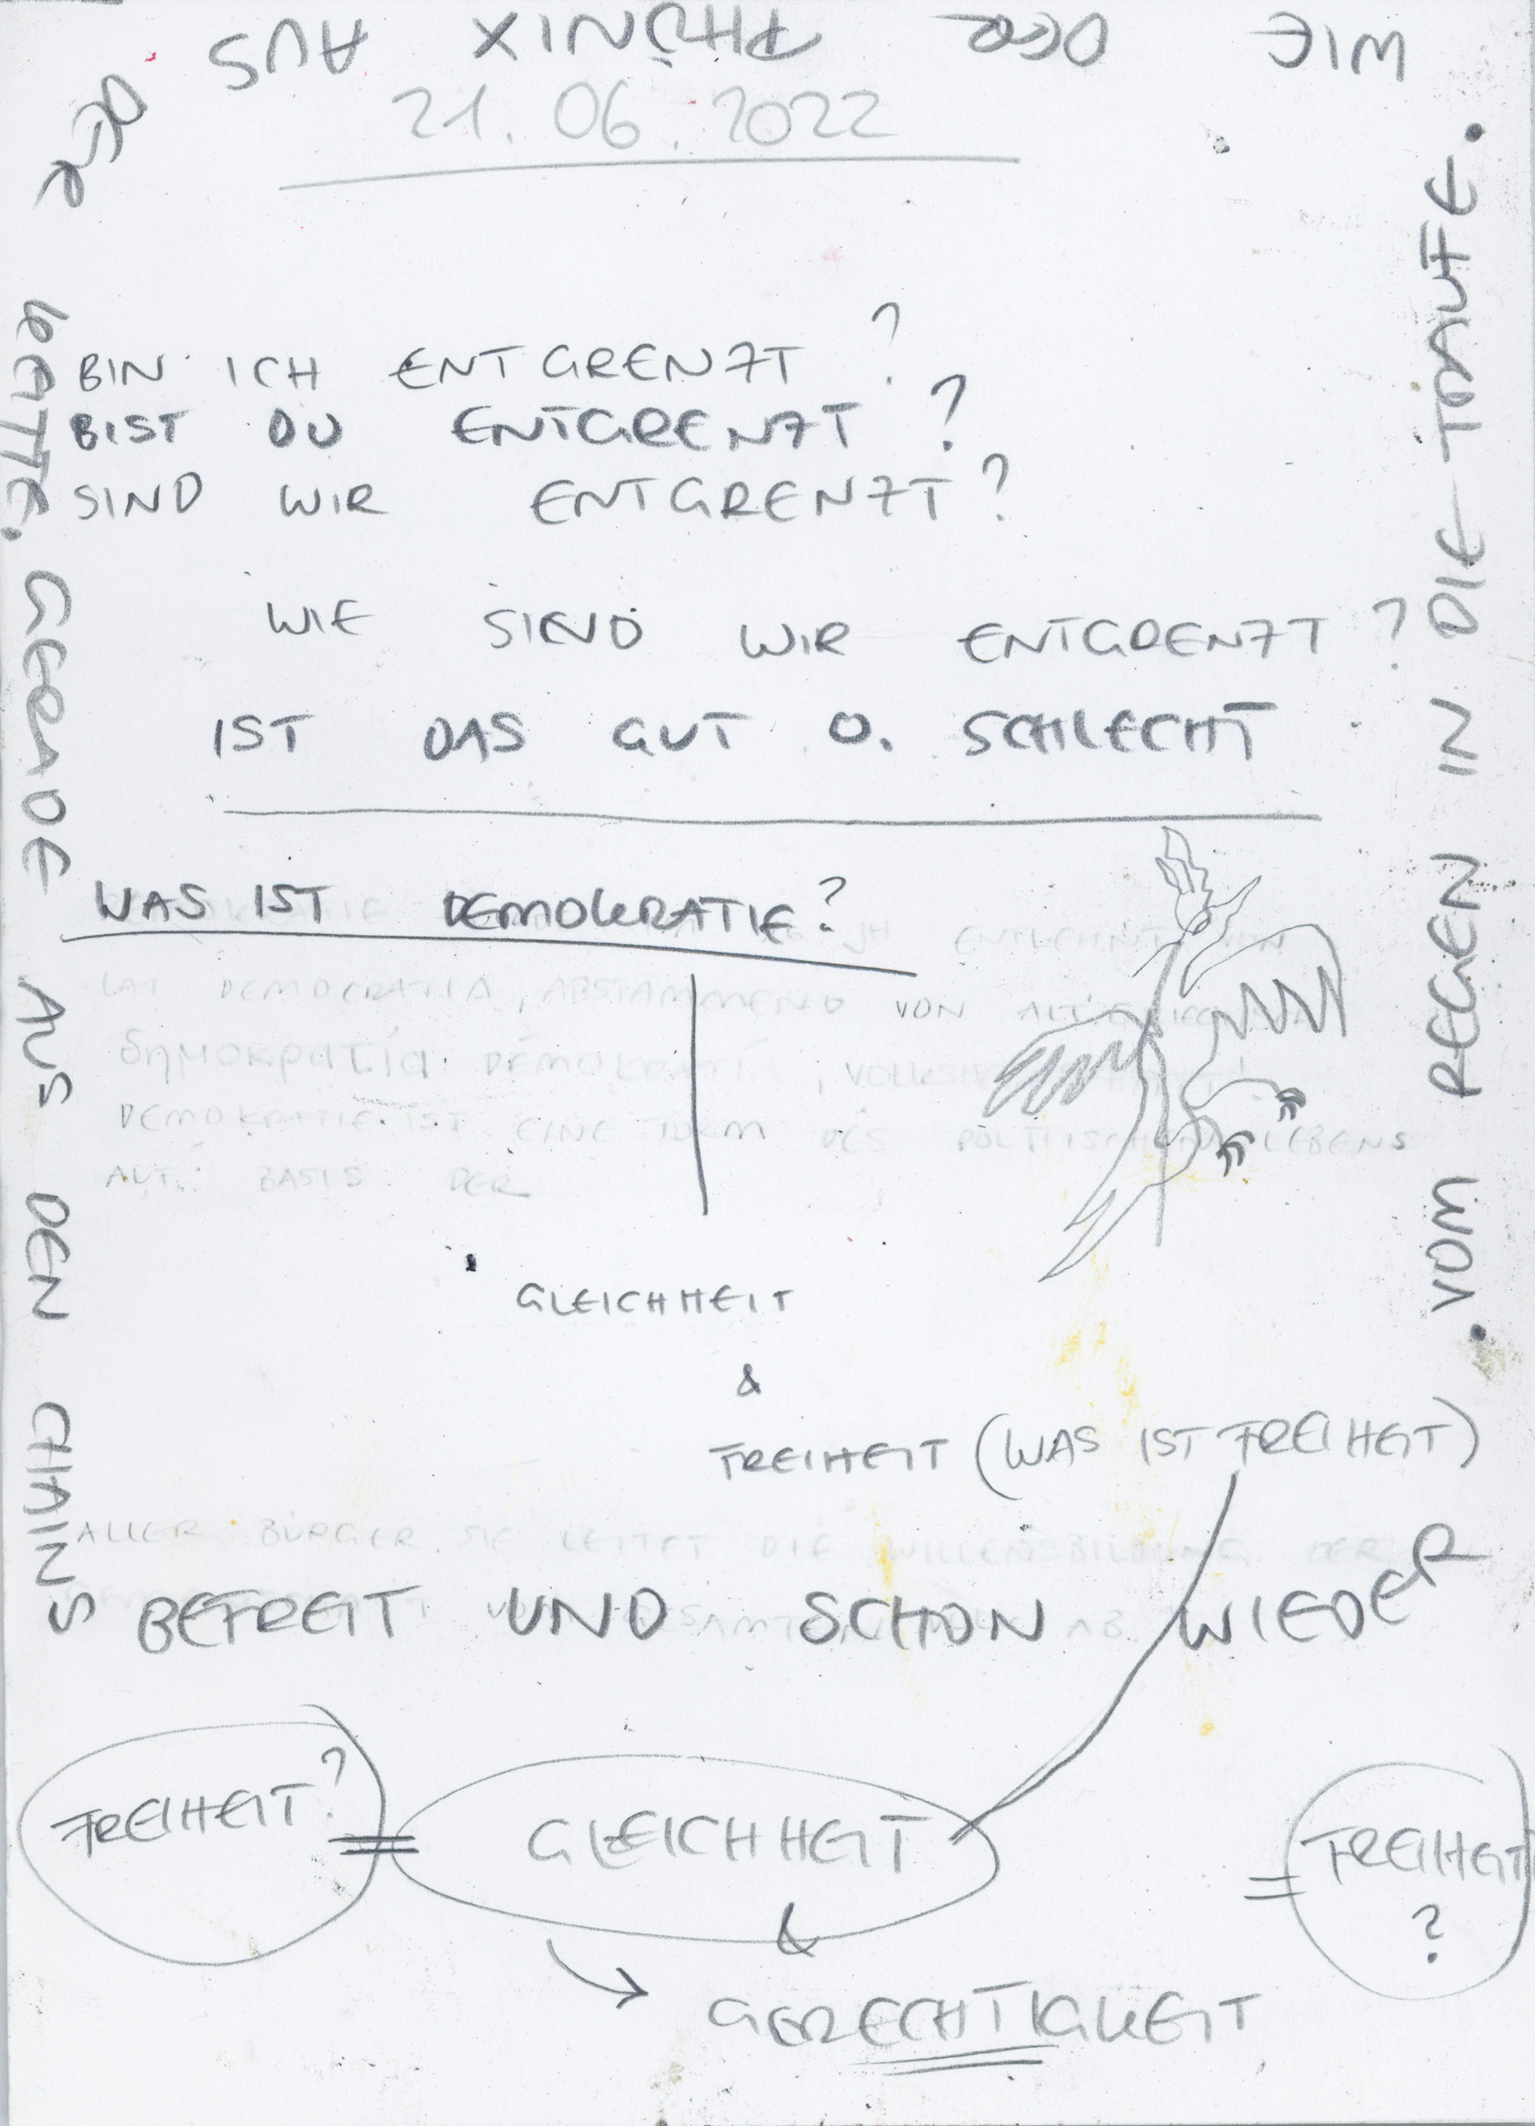 WIE DER PHÖNIX AUS
DER
21.06.2022
BIN ICH ENTGRENZT?
BIST DU ENTGRENZT?
SIND WIR ENTGRENZT?
WIE SIEND WIR ENTGRENZT?
IST DAS GUT O. SCHLECHT
WAS IST DEMOKRATIE?
JH ENTLEHNT VON
LAT DEMOCRATIA, ABSTAMMEND VON
δημοκρατία DEMOKRATIA, 
DEMOKRATIE IST EINE FORM DES POLITISCHEN LEBENS
AUF BASIS DER
GLEICHHEIT
&
FREIHEIT (WAS IST FREIHEIT)
ALLER BÜRGER. SIE LEITET DIE WILLENSBILDUNG DER
AB.
GERADE AUS DEN CHAINS
BEFREIT UND SCHON WIEDER
. VOM REGEN IN DIE TRAUFE.
FREIHEIT? = GLEICHHEIT = FREIHEIT?
&
GERECHTIGKEIT